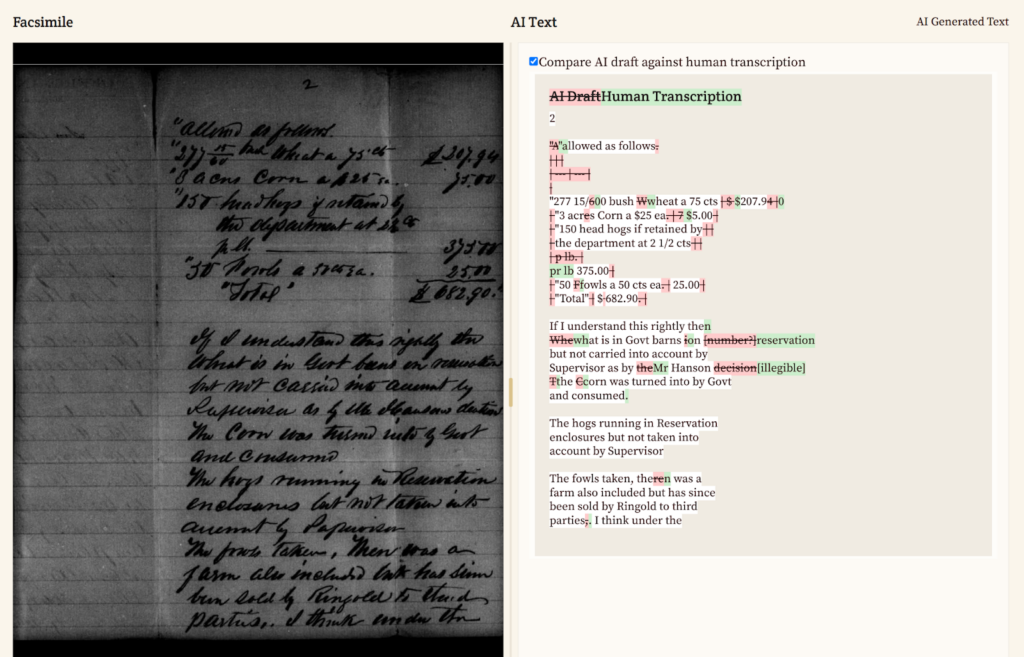 Facsimile
AI Text
AI Generated Text
2
"allowed as follows.
"277 15/60 bush Wheat a 75 cts $207.94
"3 acres Corn a $25 ea. 75.00
"150 head hogs if retained by
the department at 2½ cts
p lb. 375.00
"50 Fowls a 50 cts ea. 25.00
"Total" $682.90.
If I understand this rightly the
What is in Govt barns on reservation
but not carried into account by
Supervisor as by Mr Hansons
The Corn was turned into by Govt
and consumed
The hogs running in Reservation
enclosures but not taken into
account by Supervisor
The fowls taken, then was a
farm also included but has since
been sold by Ringold to third
parties. I think under the
Compare AI draft against human transcription
AI DraftHuman Transcription
2
"A"allowed as follows.
| | |
| --- | --- |
|
"277 15/600 bush Wwheat a 75 cts | $ $207.94 |0
| "3 acres Corn a $25 ea. | 7 $5.00 |
| "150 head hogs if retained by | |
| the department at 2 1/2 cts | |
| p lb. |
pr lb 375.00 |
| "50 Ffowls a 50 cts ea. | 25.00 |
| "Total" | $ 682.90. |
If I understand this rightly then
Whewhat is in Govt barns ion [number?]reservation
but not carried into account by
Supervisor as by theMr Hanson decision[illegible]
Tthe Ccorn was turned into by Govt
and consumed.
The hogs running in Reservation
enclosures but not taken into
account by Supervisor
The fowls taken, theren was a
farm also included but has since
been sold by Ringold to third
parties;. I think under the